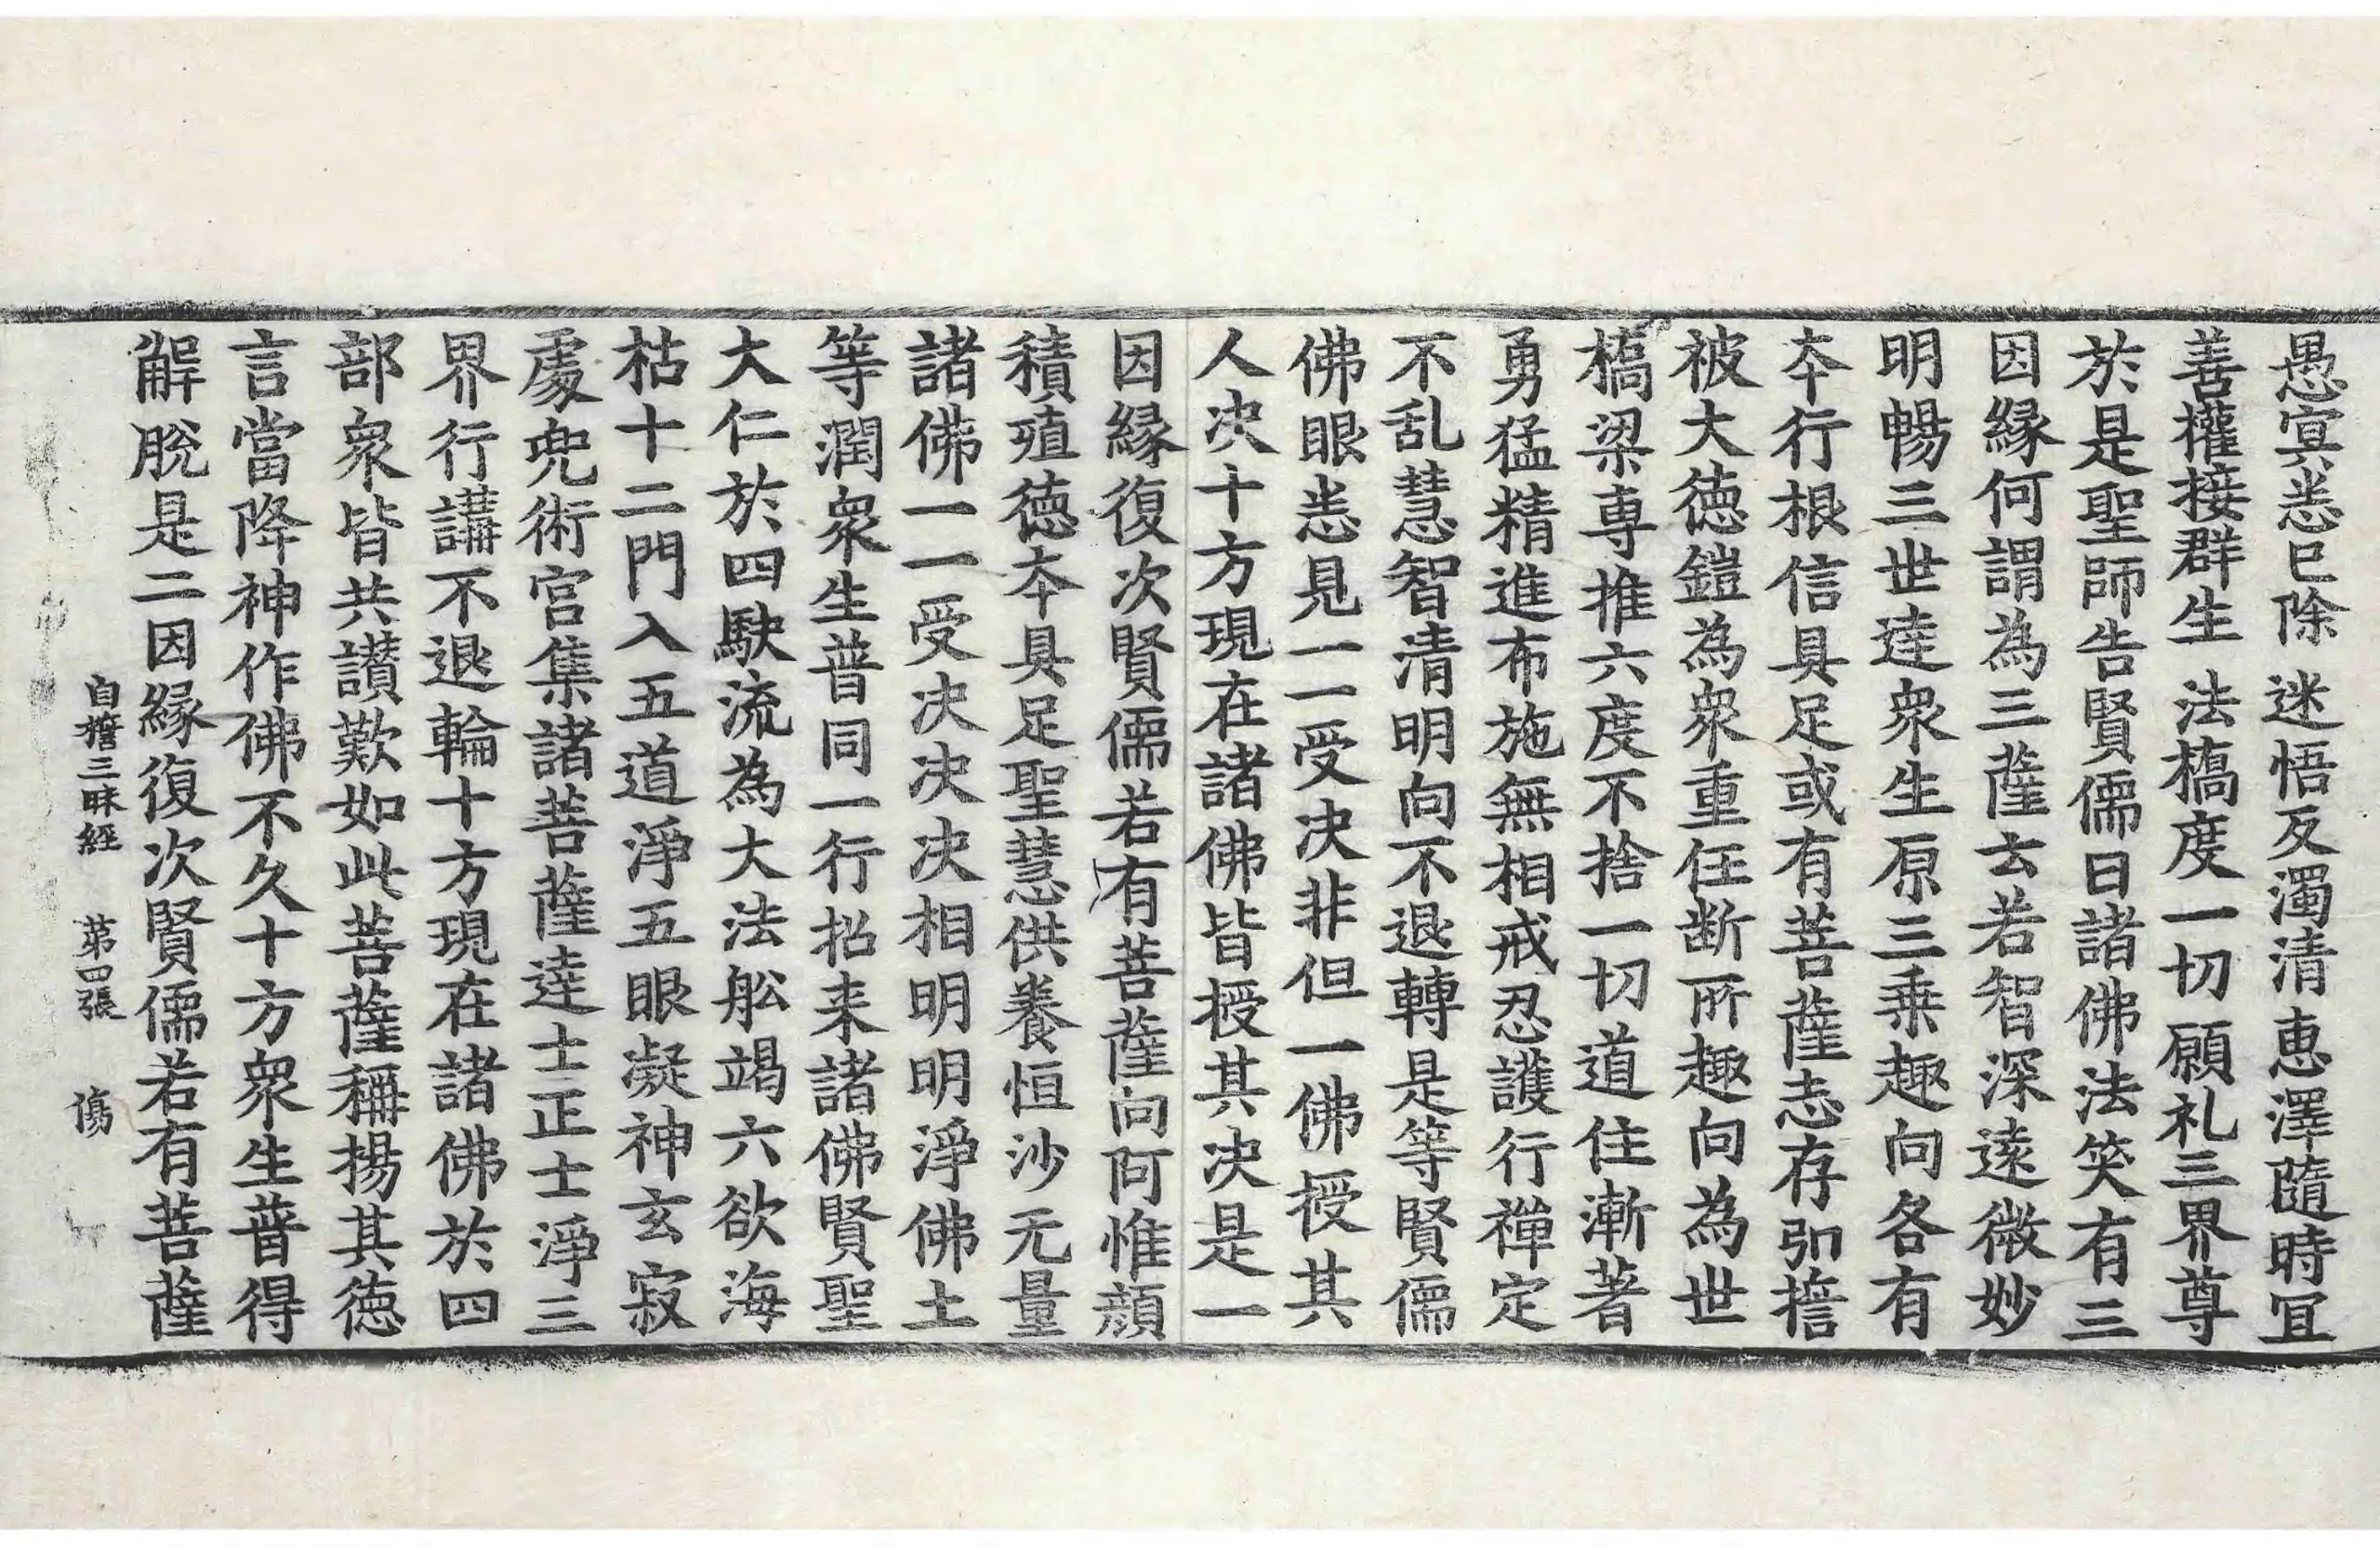 愚㝠悉已除 迷悟反濁清 惠澤隨時冝
善權接群生 法橋度一切 願礼三界尊
於是聖師告賢儒曰諸佛法笑有三
因緣何謂為三薩云若智深遠微妙
明暢三世達衆生原三乗趣向各有
夲行根信具足或有菩薩志存弘誓
被大德鎧為衆重任断所趣向為世
橋梁専推六度不捨一切道住漸著
勇猛精進布施無相戒忍護行禪定
不乱慧智清明向不退轉是等賢儒
佛眼悉見一一受决非但一佛授其
人决十方現在諸佛皆授其决是一
因緣復次賢儒若有菩薩向阿惟顔
積殖德夲具足聖慧供養恒沙无量
諸佛一一受决决决相明明淨佛土
等潤衆生普同一行招来諸佛賢聖
大仁於四駃流為大法舩竭六欲海
枯十二門入五道淨五眼凝神玄寂
處兜術宫集諸菩薩達士正士淨三
界行講不退輪十方現在諸佛於四
部衆皆共讃歎如此菩薩稱揚其德
言當降神作佛不久十方衆生普得
解脫是二因緣復次賢儒若有菩薩
自誓三昧經 苐四張 傷